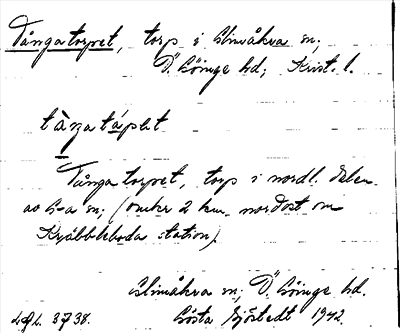 Tångatorpet, torp i Glimåkra sn;
Ö. Göinge hd; Krist. l.
tåŋatåpət
Tångatorpet, torp i nordl. delen
av G-a sn; (omkr 2 km. nordost om
Kräbbleboda station).
Glimåkra sn; Ö. Göinge hd.
Gösta Sjöstedt 1942.